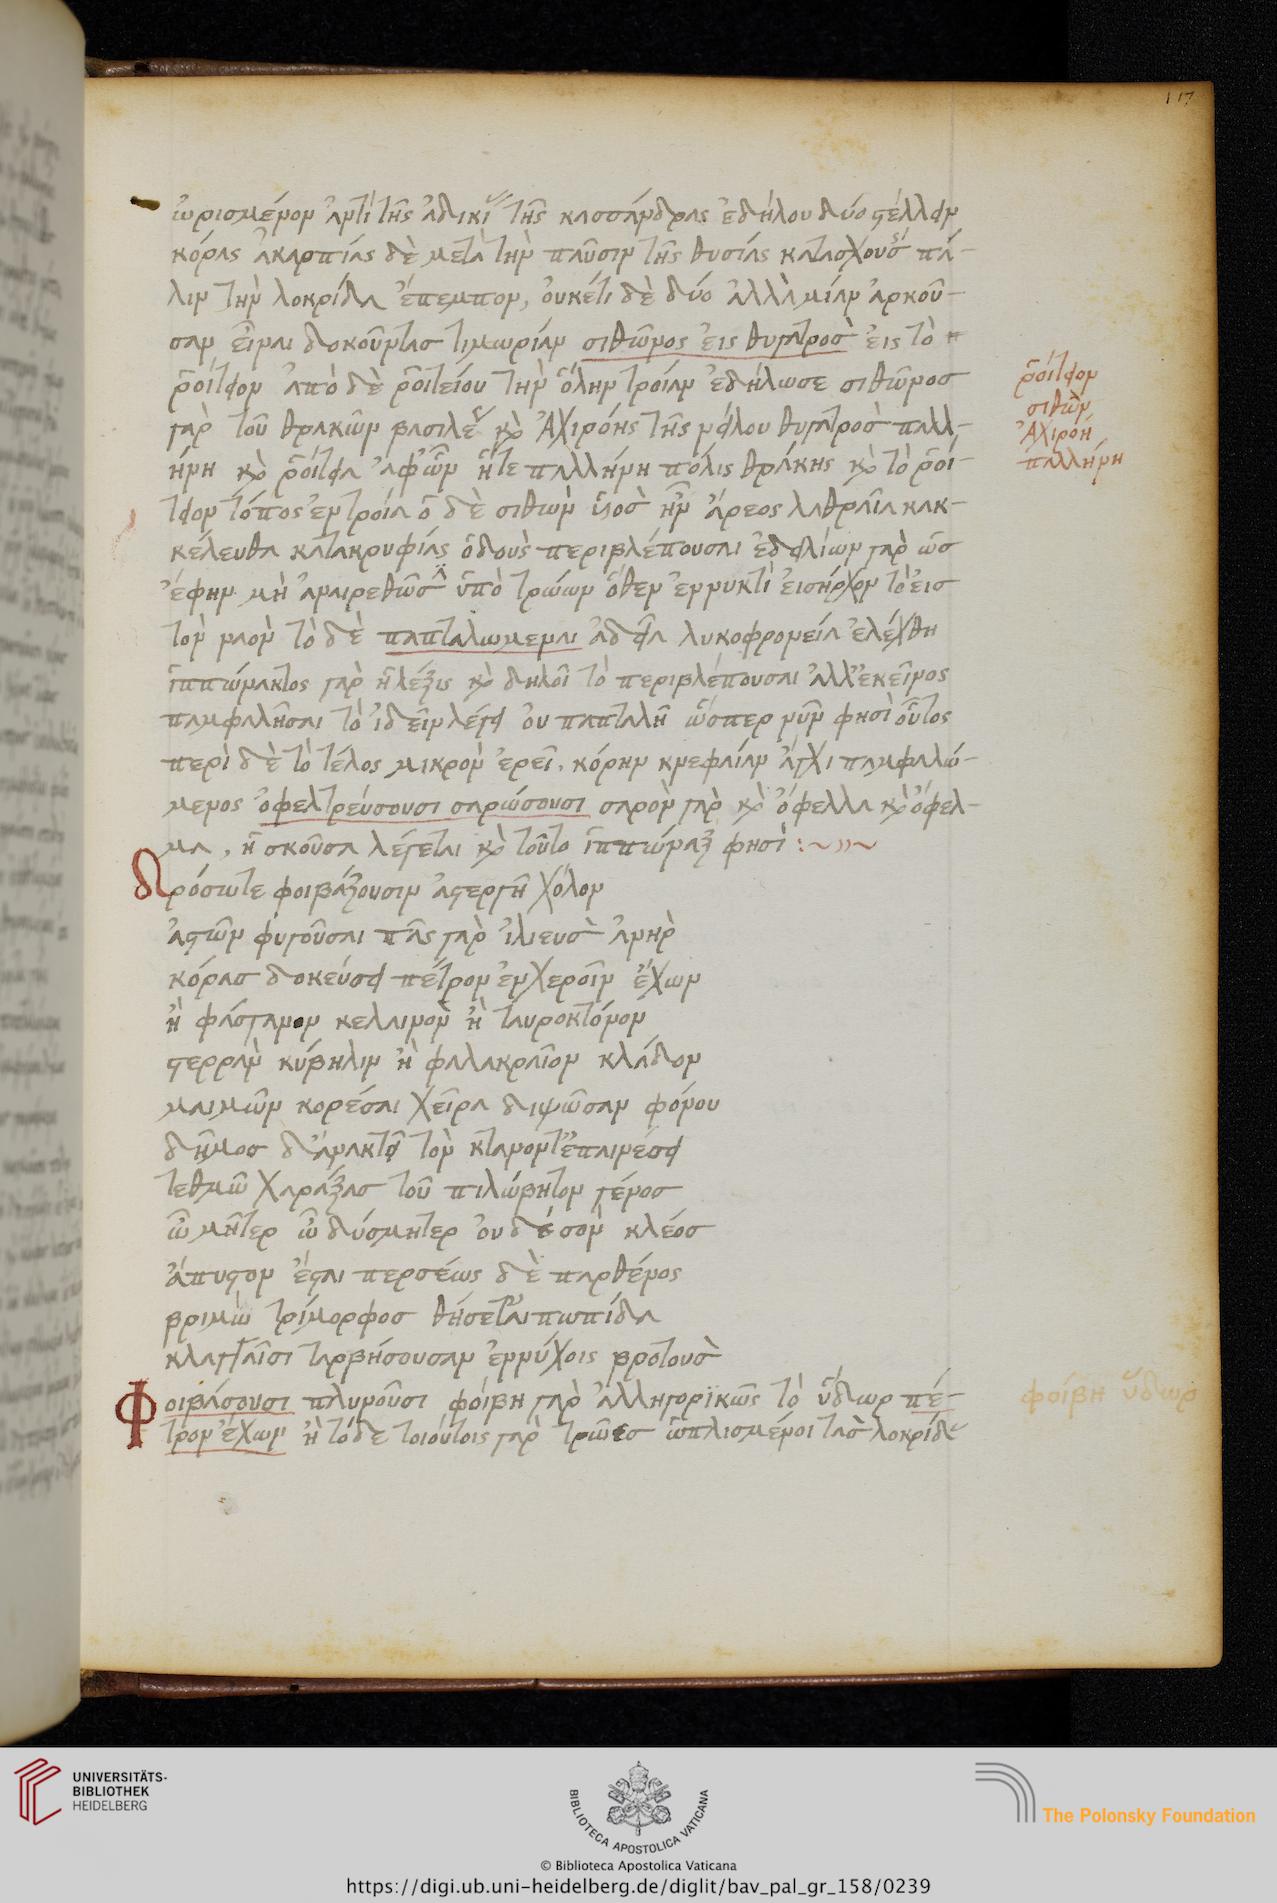 117
ὡρισμένον ἀντὶ τῆς ἀδικί τῆς κασσάνδρας ἐδήλου δύο στέλλειν
κόρας ἀκαρπίας δὲ μετὰ τὴν παῦσιν τῆς θυσίας κατασχούσ πά-
λιν τὴν λοκρίδα ἔπεμπον, οὐκέτι δὲ δύο ἀλλὰ μίαν ἀρκοῦ-
σαν εἶναι δοκοῦντασ τιμωρίαν σιθῶνος εἰς θυγατροσ εἰς τὸ
ῥοίτειον ἀπὸ δὲ ῥοιτείου τὴν ὅλην τροίαν ἐδήλωσε σιθῶνοσ
γὰρ τοῦ θρακῶν βασιλέ καὶ Ἀχιρόης τῆς νείλου θυγατροσ παλλ-
ήνη καὶ ῥοίτεια ἀφ' ὧν ἥτε παλλήνη πόλις θράκης καὶ τὸ ῥοί-
τειον τόπος ἐν τροία ὁ δὲ σιθὼν υἱὸσ ἦν ἄρεος λαθραῖα κακ-
κέλευθα κατακρυφίας ὁδοὺς περιβλέπουσαι ἐδειλίων γὰρ ὡσ
ἔφην μὴ ἀναιρεθῶσ ὑπὸ τρώων ὅθεν ἐννυκτὶ εἰσήρχον τὸ εἰσ
τὸν ναὸν τὸ δὲ παπταλωμεναι ἄδεια λυκοφρονεία ἐλέχθη
ἱππώνακτος γὰρ ἡ λέξις καὶ δηλοῖ τὸ περιβλέπουσαι ἀλλ' ἐκεῖνος
παμφαλῆσαι τὸ ἰδεῖν λέγει οὐ παπταλῆ ὥσπερ νῦν φησὶ οὗτος
περὶ δὲ τὸ τέλος μικρὸν ἐρεῖ. κόρην κνεφαίαν ἄγχι παμφαλώ-
μενος ὀφελτρεύσουσι σαρώσουσι σαρὸν γὰρ καὶ ὄφελλα καὶ ὄφελ-
μα, ἡ σκοῦσα λέγεται καὶ τοῦτο ἱππώναξ φησὶ :~"~
ῥοίτειον
σιθών
Ἀχιρόη
παλλήνη
δρόσωτε φοιβάζουσιν ἀστεργῆ χόλον
ἀστῶν φυγοῦσαι πᾶς γὰρ ἰλιευσ ἀνὴρ
κόρασ δοκεύσει πέτρον ἐν χεροῖν ἔχων
ἢ φάσγανον κελαινὸν ἢ ταυροκτόνον
στερρὰν κύβηλιν ἢ φαλακραῖον κλάδον
μαιμῶν κορέσαι χεῖρα διψῶσαν φόνου
δῆμοσ δ' ἀνακτὸ τὸν κτανοντ' ἐπαινέσει
τεθμῶ χαράξασ τοῦ πιλώβητον γένοσ
ὦ μῆτερ ὦ δύσμητερ οὐδὲ σὸν κλέοσ
ἄπυστον ἔσται περσέως δὲ παρθένος
βριμὼ τρίμορφοσ θήσεταιπωπίδα
κλαγγαῖσι ταρβήσουσαν ἐννύχοις βροτοὺσ
Φοιβάσουσι πλυνοῦσι φοίβη γὰρ ἀλληγορϊκῶς τὸ ὕδωρ πέ-
τρον ἔχων ἢ τόδε τοιούτοις γὰρ τρῶεσ ὡπλισμένοι τὰσ λοκρίδ
φοίβη ὕδωρ
UNIVERSITÄTS-
BIBLIOTHEK
HEIDELBERG
BIBLIOTECA APOSTOLICA VATICANA
The Polonsky Foundation
© Biblioteca Apostolica Vaticana
https://digi.ub.uni-heidelberg.de/diglit/bav_pal_gr_158/0239